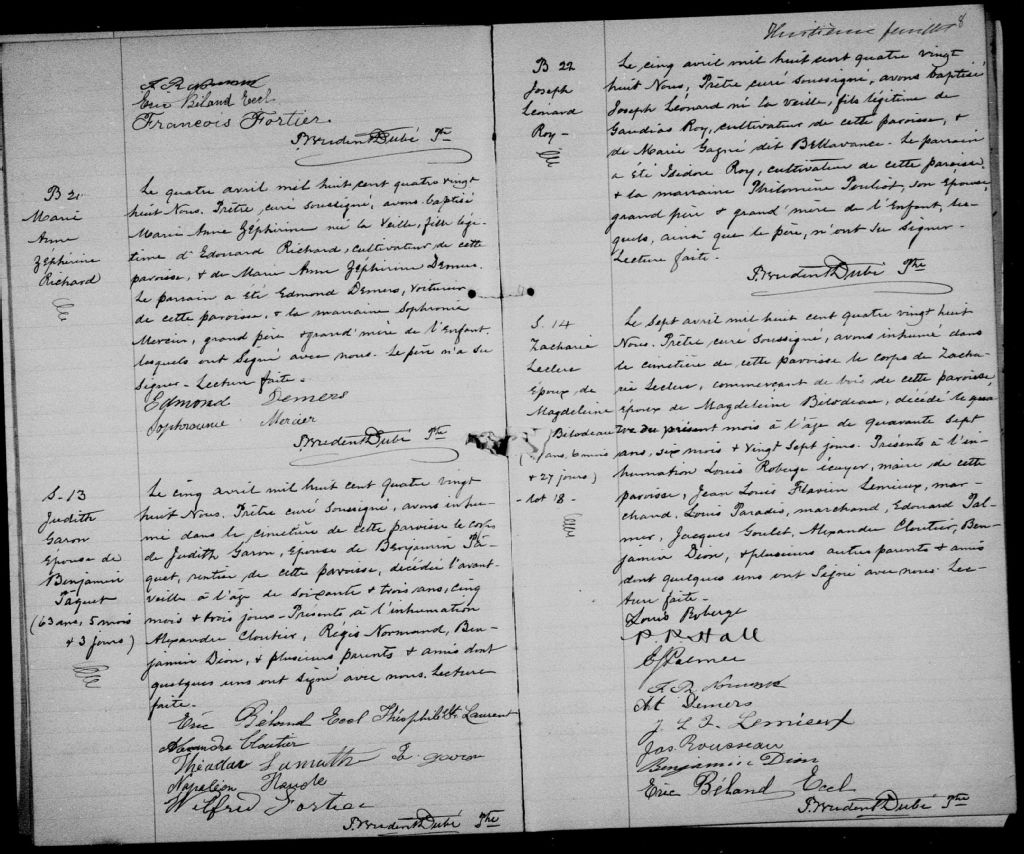 F. R. Normand
Eric Béland Eccl.
Francois Fortier
P. Prudent Dubé Ptre
B 21
Marie
Anne
Zéphirine
Richard
Le quatre avril mil huit cent quatre vingt
huit Nous, Prêtre curé soussigné, avons baptisé
Marie Anne Zéphirine née la Veille, fille légi-
time d'Edouard Richard, cultivateur de cette
paroisse, & de Marie Anne Zéphirine Demers.
Le parrain a été Edmond Demers, voiturier
de cette paroisse, & la marraine Sophronie
Mercier, grand père & grand'mère de l'Enfant,
lesquels ont Signé avec nous. Le père n'a su
signer - Lecture faite.
Edmond Demers
Sophronnie Mercier
P. Prudent Dubé Ptre
S-13
Judith
Garon
Epouse de
Benjamin
Paquet
(63 ans, 5 mois
& 3 jours)
Le cinq avril mil huit cent quatre vingt
huit Nous, Prêtre curé Soussigné, avons inhu-
mé dans le cimetière de cette paroisse le corps
de Judith Garon, Epouse de Benjamin Pa-
quet, rentier de cette paroisse, décédée l'avant
veille à l'âge de soixante & trois ans, cinq
mois & trois jours - Présents à l'inhumation
Alexandre Cloutier, Régis Normand, Ben-
jamin Dion, & plusieurs parents & amis dont
quelques uns ont signé avec nous. Lecture
faite.
Eric Béland Eccl Théophile St Laurent
Alexandre Cloutier
Théodar Lamath
Napoléon Naude
Wilfrid Fortier
P. Prudent Dubé Ptre
Huitième feuillet 8
B 22
Joseph
Léonard
Roy-
Le cinq avril mil huit cent quatre vingt
huit Nous, Prêtre curé soussigné, avons baptisé
Joseph Léonard né la veille, fils légitime de
Gaudias Roy, cultivateur de cette paroisse, &
de Marie Gagné dit Bellavance - Le parrain
a été Isidore Roy, cultivateur de cette paroisse
& la marraine Philomène Pouliot, son épouse,
grand père & grand'mère de l'Enfant, les-
quels, ainsi que le père, n'ont su signer -
Lecture faite -
P. Prudent Dubé Ptre
S. 14
Zacharie
Leclerc
Epoux de
Magdeleine
Bilodeau
ans. 6 mois
& 27 jours)
- lot 18 -
Le Sept avril mil huit cent quatre vingt huit
Nous, Prêtre curé soussigné, avons inhumé dans
le cimetière de cette paroisse le corps de Zacha-
rie Leclerc, commerçant de bois de cette paroisse,
époux de Magdeleine Bilodeau, décédé le qua-
tre du présent mois à l'âge de quarante sept
ans, six mois & vingt sept jours. Présents à l'in-
humation Louis Roberge écuyer, maire de cette
paroisse, Jean Louis Flavien Lemieux, mar-
chand, Louis Paradis, marchand, Edouard Pal-
mer, Jacques Goulet, Alexandre Cloutier, Ben-
jamin Dion, & plusieurs autres parents & amis
dont quelques uns ont signé avec nous - Lec-
ture faite -
Louis Roberge
P. R. Hall
E J Palmer
F. R. Normand
At Demers
J L F Lemieux
Jos. Rousseau
Benjamin Dion
Eric Béland Eccl
P. Prudent Dubé Ptre